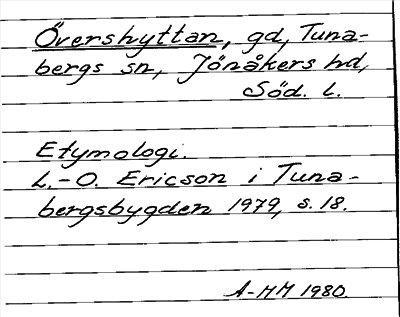 Övershyttan, gd, Tuna-
bergs sn, Jönåkers hd,
Söd. l.
Etymologi.
L.-O. Ericson i Tuna-
bergsbygden 1979, s. 18.
A-MM 1980.